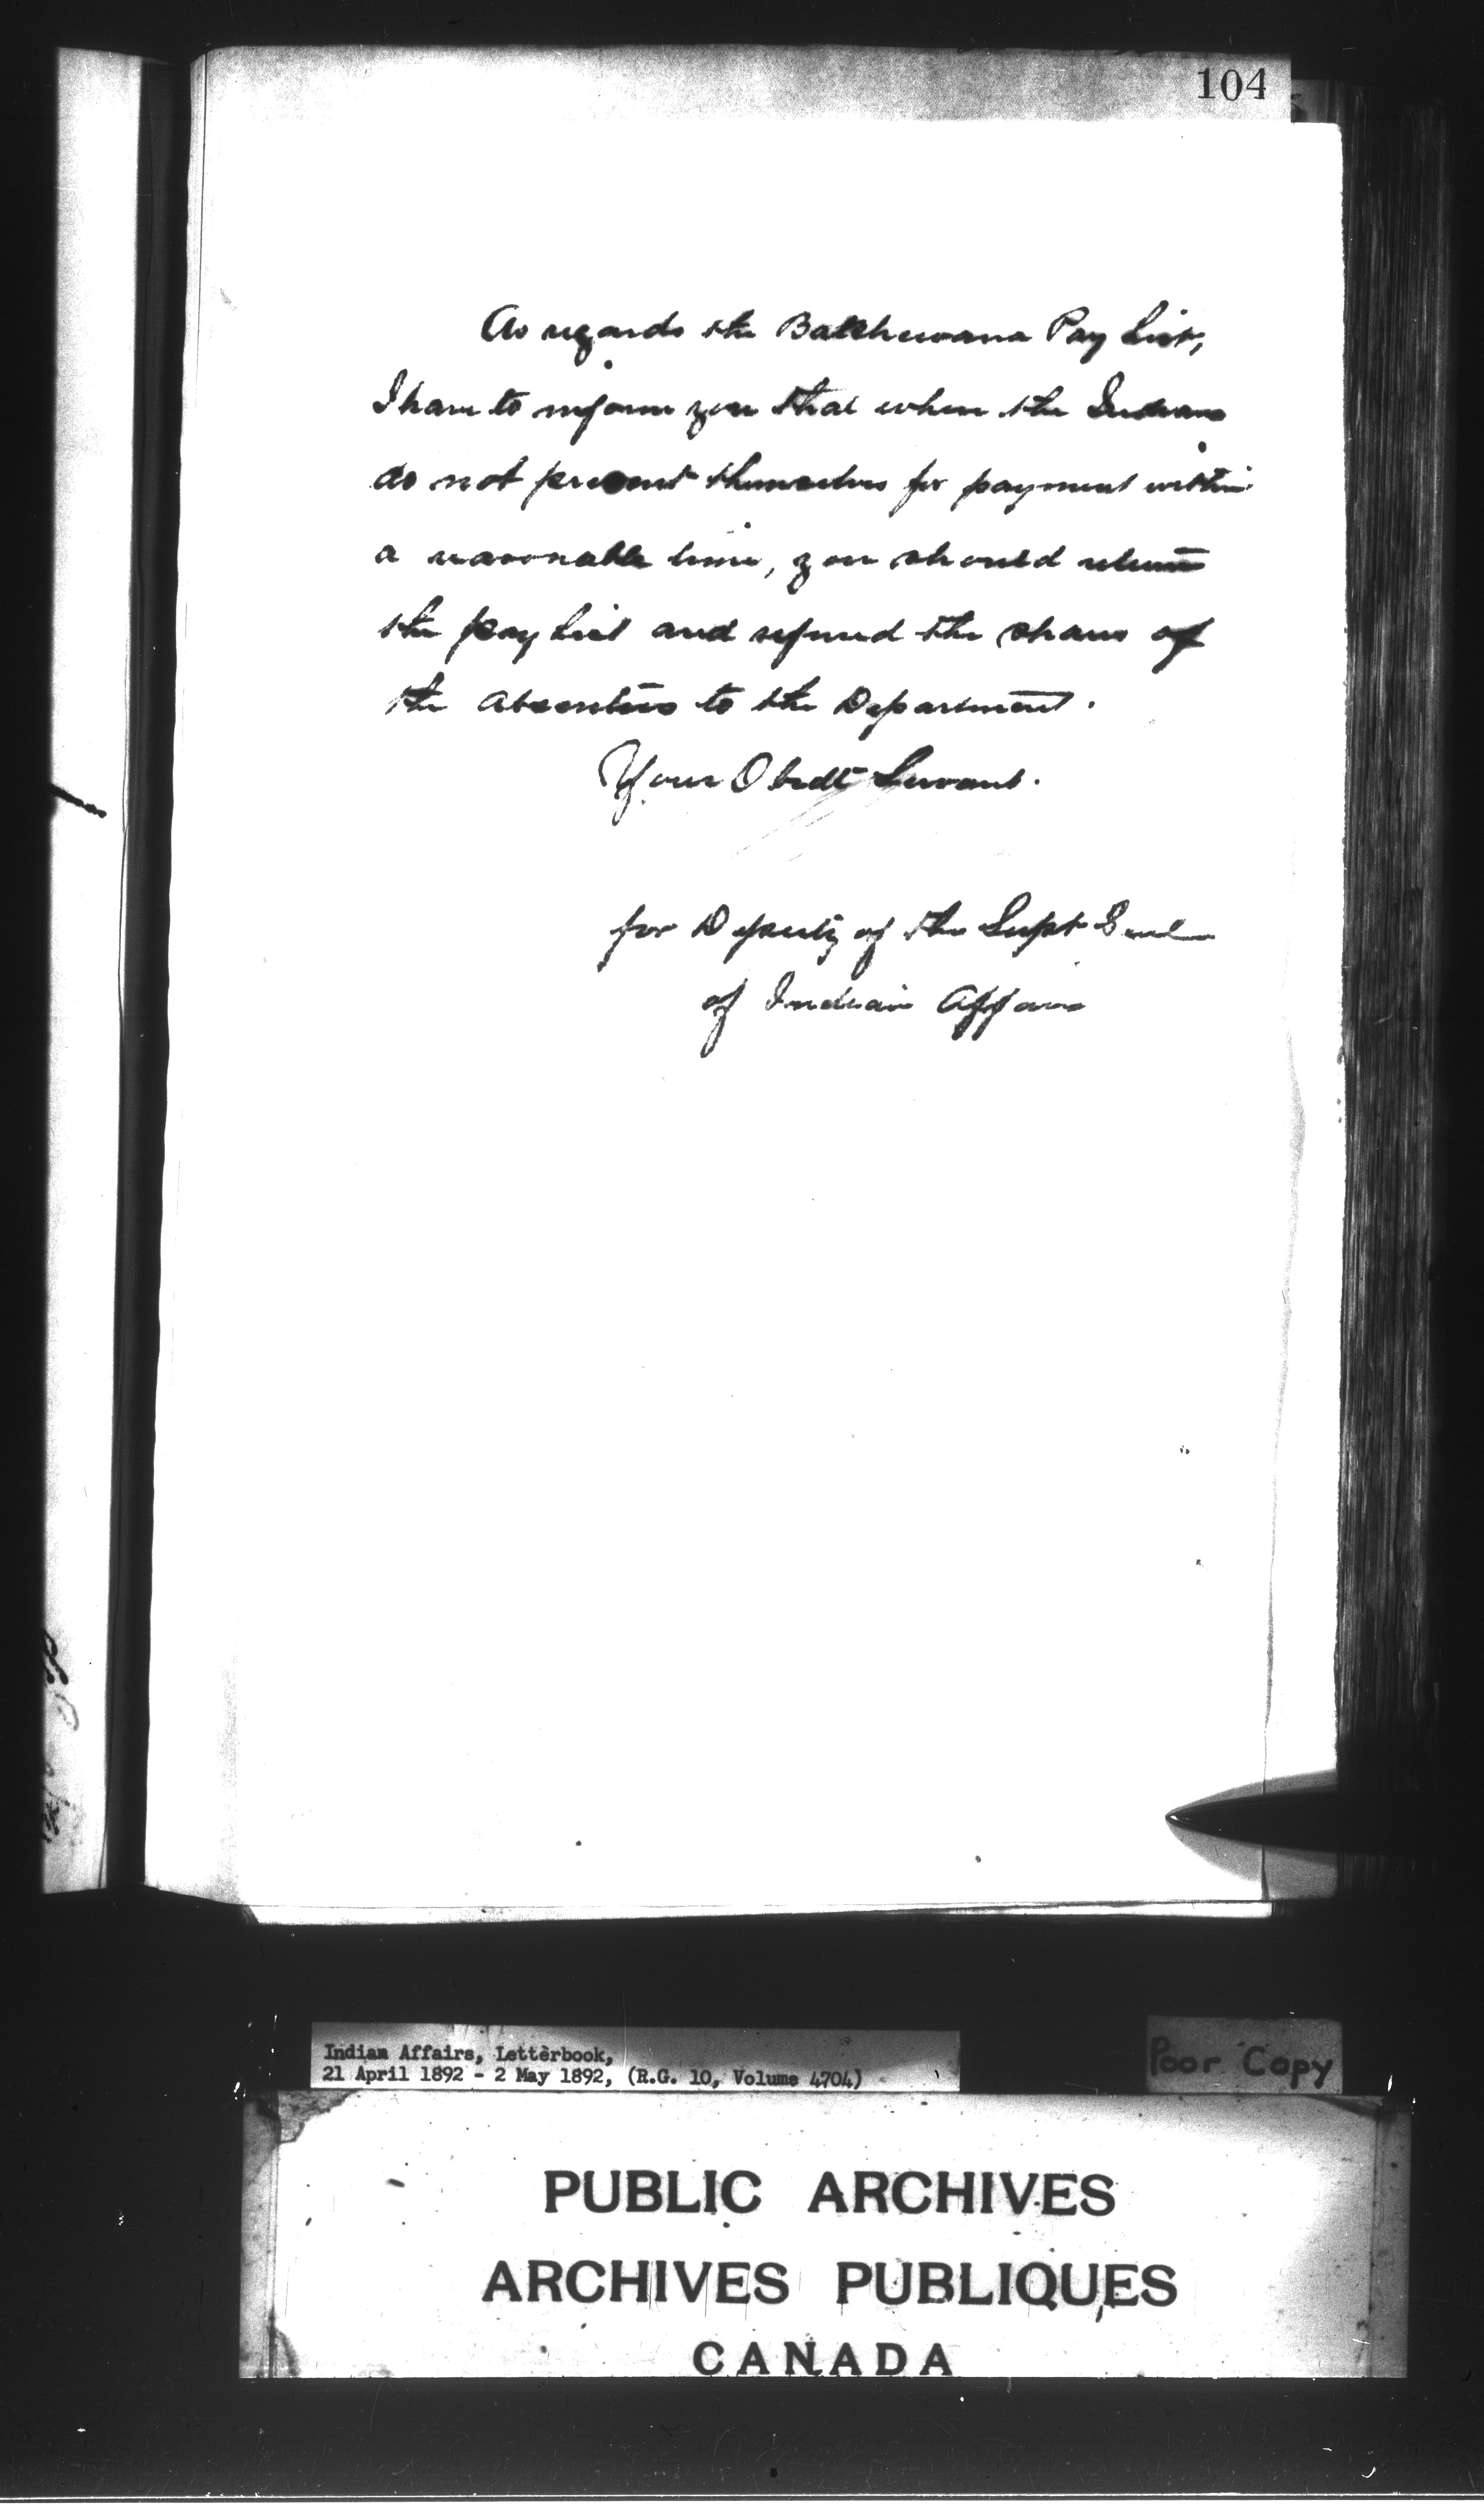 104
As regards the Batchewana Pay List,
I have to inform you that when the Indians
do not present themselves for payment within
a reasonable time, you should return
the pay list and refund the shares of
the absentees to the Department.
Your Obedt Servant.
for Deputy of the Supt Genl
of Indian Affairs
Indian Affairs, Letterbook,
21 April 1892 - 2 May 1892, (R.G. 10, Volume 4704)
Poor Copy
PUBLIC ARCHIVES
ARCHIVES PUBLIQUES
CANADA